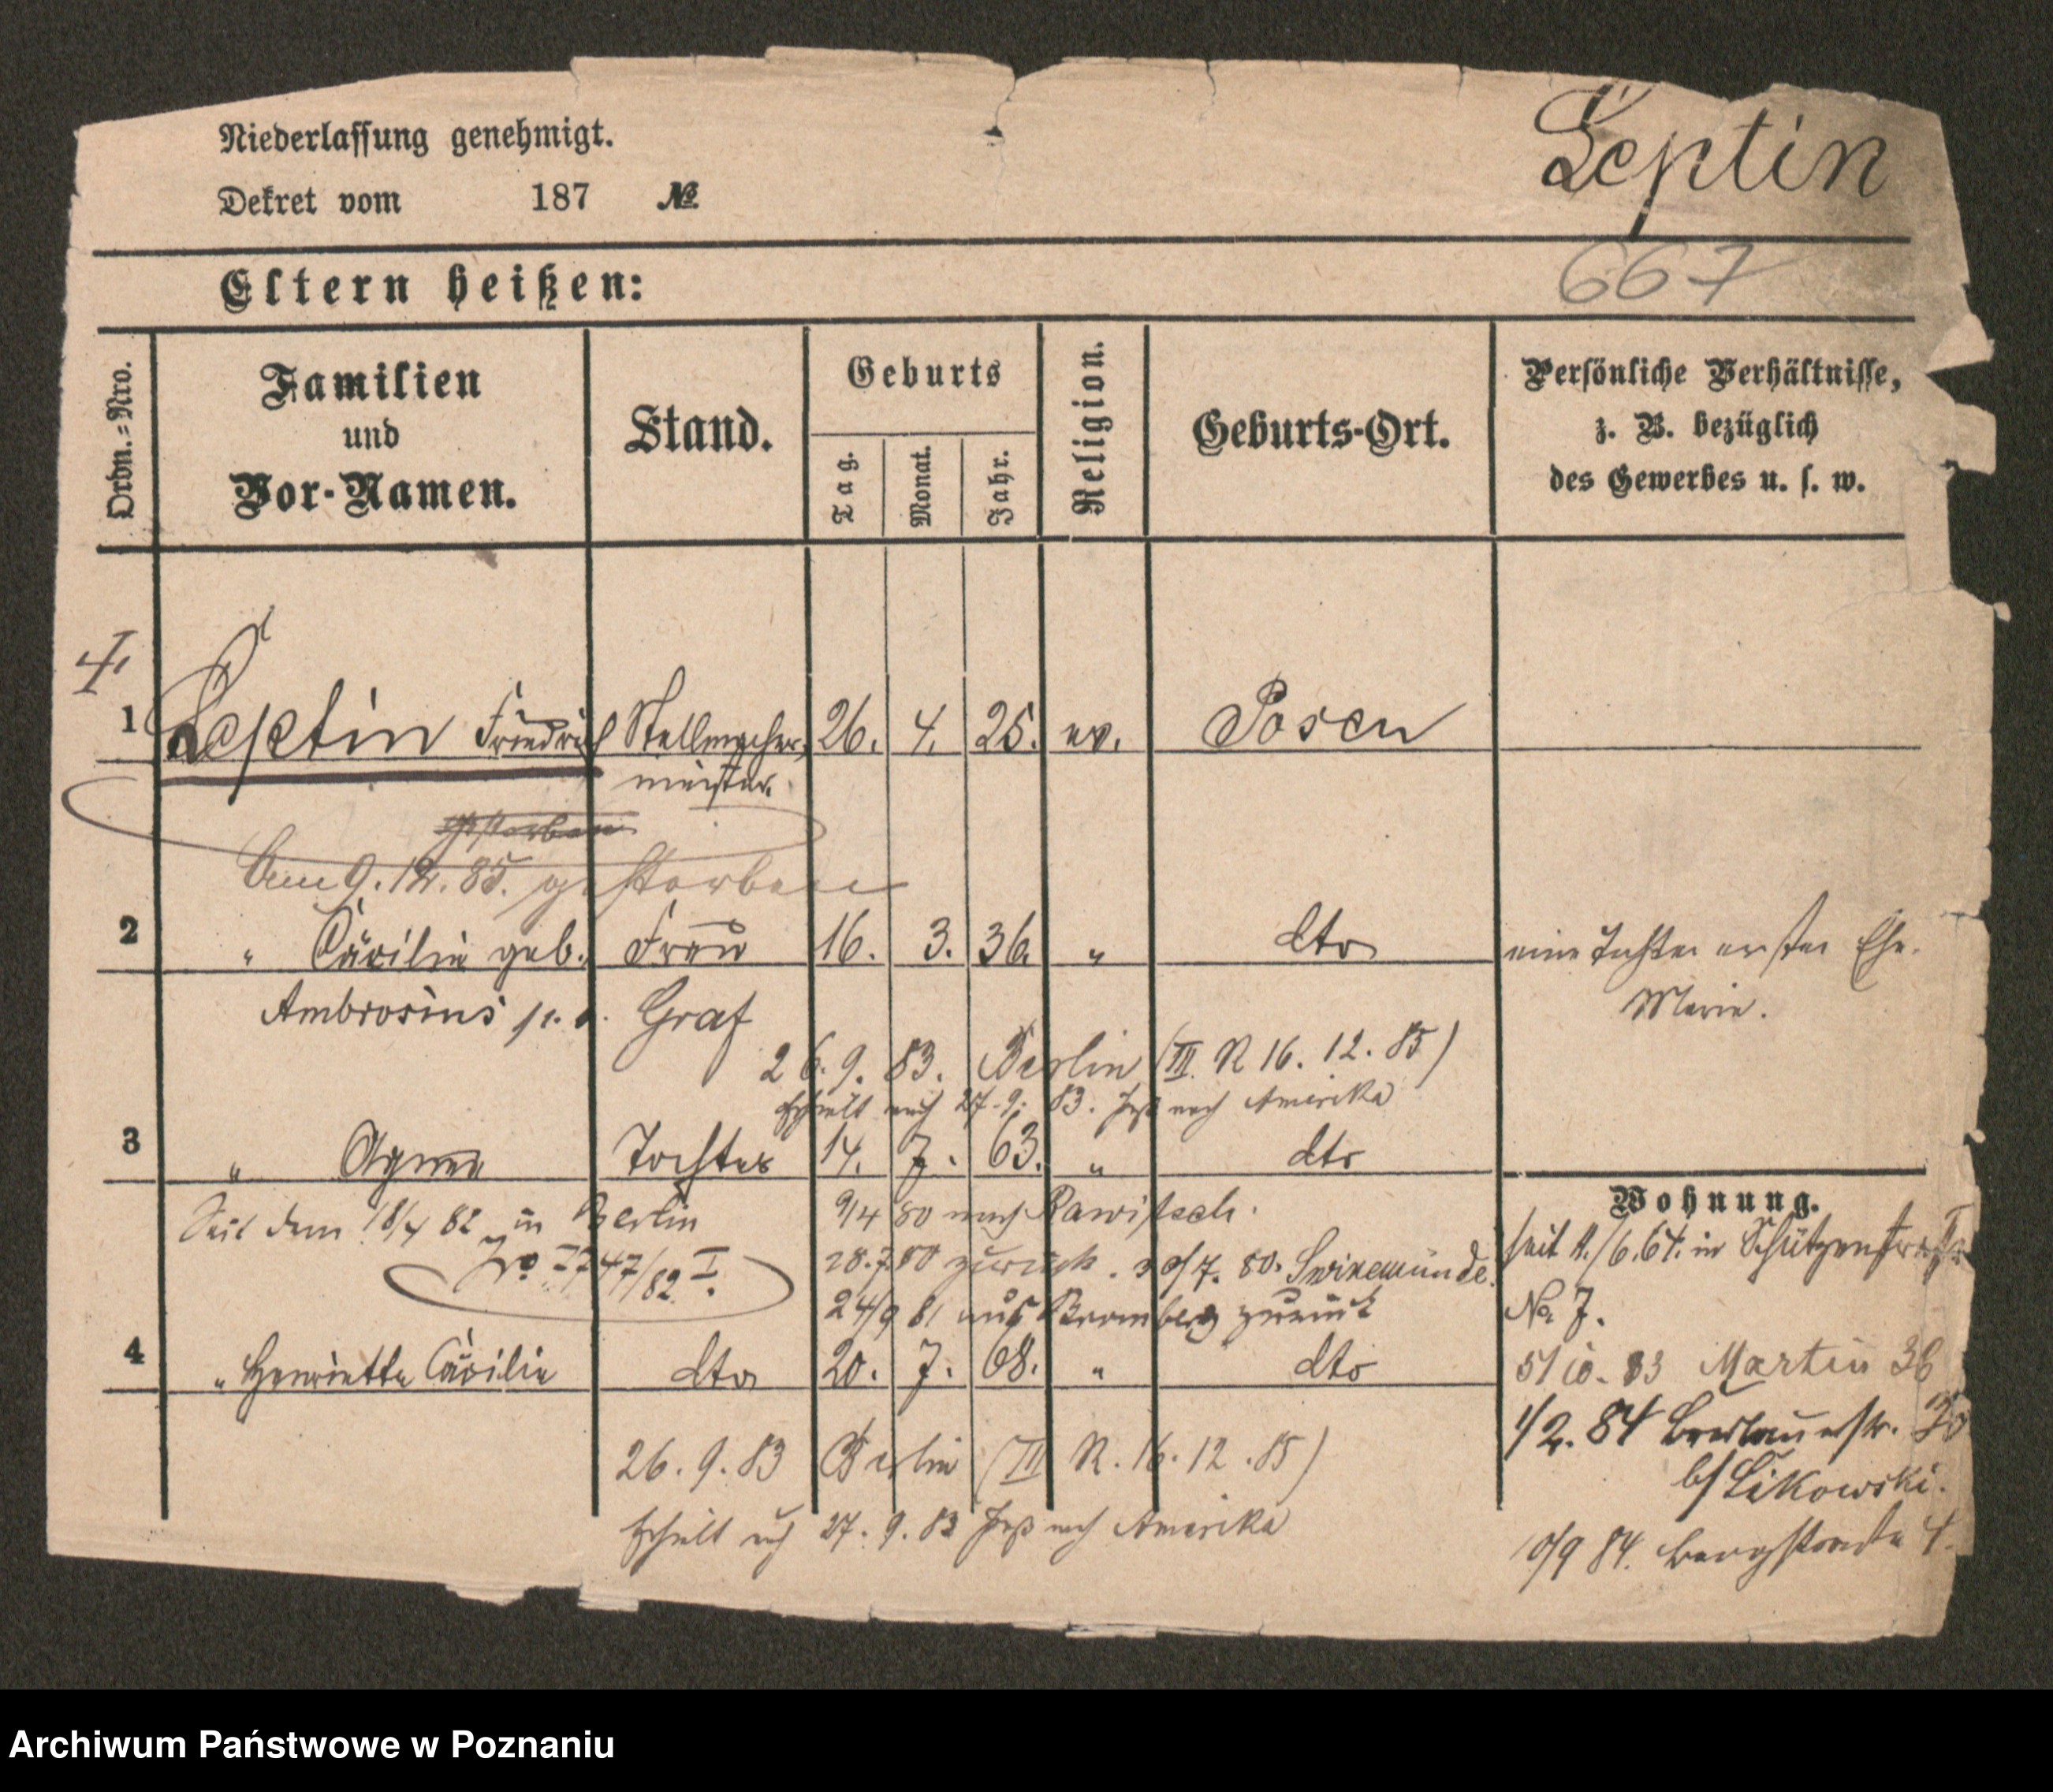 Leptin
Niederlassung genehmigt.
Dekret vom 187 №
667
Eltern heißen:
Ordn.=Nro.
Familien
und
Vor-Namen.
Stand.
Geburts
Tag.
Monat.
Jahr.
Religion.
Geburts-Ort.
Persönliche Verhältnisse,
z. B. bezüglich
des Gewerbes u. s. w.
1 Leptin Friedrich Stellmacher 26. 4. 25. ev. Posen
meister.
gestorben
Am 9. 12. 85. gestorben
2 " Cäcilie geb. Frau 16. 3. 36. " dto eine Tochter erster Ehe.
Ambrosius Graf Marie.
26. 9. 83. Berlin (III R 16. 12. 85)
Erhielt auch 27. 9. 83. Paß nach Amerika
3 " Agnes Tochter 14. 7. 63. " dto
Wohnung.
Seit dem 18/4 82 in Berlin
9/4 80 nach Rawitsch.
28.7 80 zurück. 30/7. 80. Swinemünde.
24/9 81 aus Bromberg zurück
seit 4./6.64. in Schützenstraße
No 7.
4 " Henriette Cäcilie dto 20. 7. 68. " dto
5/10. 83 Martin 36
1/2. 84 Breslauerstr. 30
b/ Likowski.
26. 9. 83 Berlin (III R. 16. 12. 85)
Erhielt auch 27. 9. 83 Paß nach Amerika
10/9 84. Bergstraße 4.
Archiwum Państwowe w Poznaniu